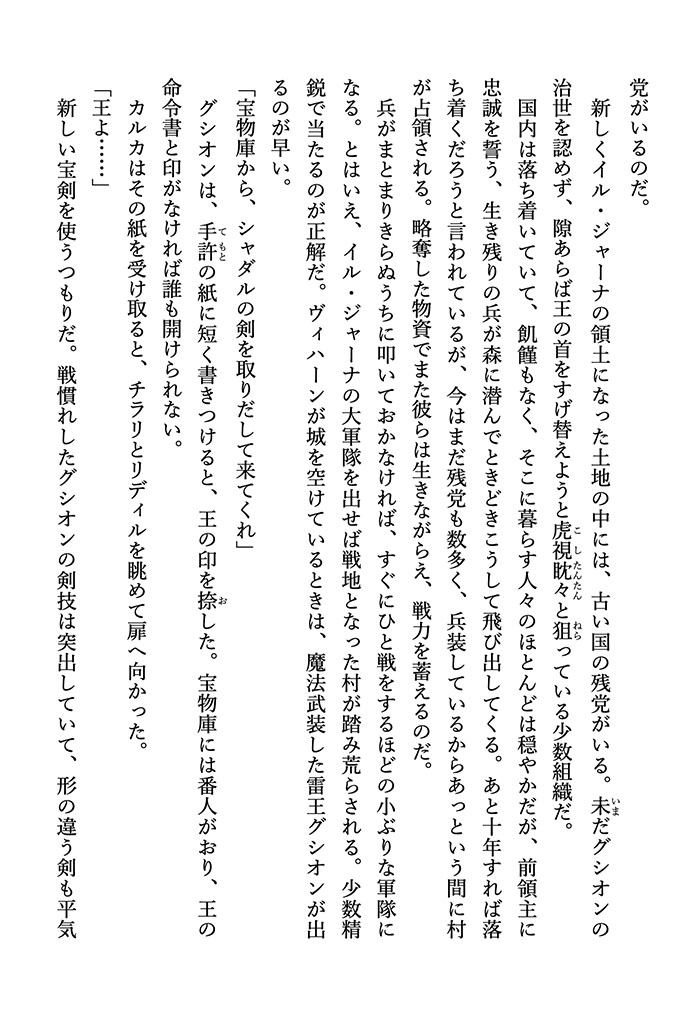 党がいるのだ。
　新しくイル・ジャーナの領土になった土地の中には、古い国の残党がいる。未だグシオンの
治世を認めず、隙あらば王の首をすげ替えようと虎視眈々と狙っている少数組織だ。
　国内は落ち着いていて、飢饉もなく、そこに暮らす人々のほとんどは穏やかだが、前領主に
忠誠を誓う、生き残りの兵が森に潜んでときどきこうして飛び出してくる。あと十年すれば落
ち着くだろうと言われているが、今はまだ残党も数多く、兵装しているからあっという間に村
が占領される。略奪した物資でまた彼らは生きながらえ、戦力を蓄えるのだ。
　兵がまとまりきらぬうちに叩いておかなければ、すぐにひと戦をするほどの小ぶりな軍隊に
なる。とはいえ、イル・ジャーナの大軍隊を出せば戦地となった村が踏み荒らされる。少数精
鋭で当たるのが正解だ。ヴィハーンが城を空けているときは、魔法武装した雷王グシオンが出
るのが早い。
「宝物庫から、シャダルの剣を取りだして来てくれ」
　グシオンは、手許の紙に短く書きつけると、王の印を捺した。宝物庫には番人がおり、王の
命令書と印がなければ誰も開けられない。
　カルカはその紙を受け取ると、チラリとリディルを眺めて扉へ向かった。
「王よ……」
　新しい宝剣を使うつもりだ。戦慣れしたグシオンの剣技は突出していて、形の違う剣も平気